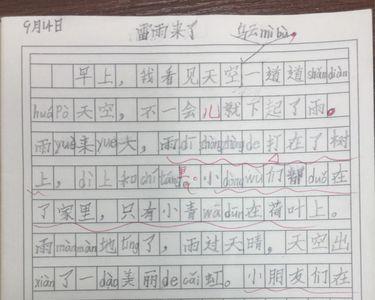 9月14日 雷雨来了 乌云mìbù,
早上，我看见天空一道道shǎndiàn
huáPò天空，不一会儿就下起了雨。
雨yuè来yuè大，雨dī zhòngzhòngde打在了树
上，dì上和chítáng里。小dòngwù们都duǒ在
了家里，只有小青wādūn在荷叶上。
雨mànmàn地tíng了，雨过天晴，天空出
xiàn了一dào美丽de cǎi虹。小朋友们在